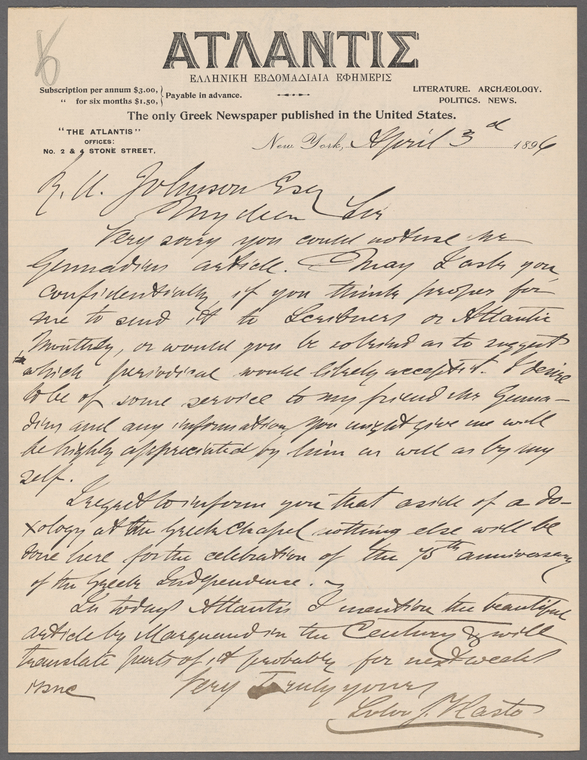 ΑΤΛΑΝΤΙΣ
ΕΛΛΗΝΙΚΗ ΕΒΔΟΜΑΔΙΑΙΑ ΕΦΗΜΕΡΙΣ
Subscription per annum $3.00,
" for six months $1.50,
Payable in advance.
LITERATURE. ARCHÆOLOGY.
POLITICS. NEWS.
The only Greek Newspaper published in the United States.
"THE ATLANTIS"
OFFICES:
No. 2 & 4 STONE STREET.
New York, April 3d 1896
R. U. Johnson Esq
My dear Sir
Very sorry you could not use Mr
Gennadius article. May I ask you
confidentially if you think proper for
me to send it to Scribners or Atlantic
Monthly, or would you be so kind as to suggest
which periodical would likely accept it. I desire
to be of some service to my friend Mr Genna-
dius and any information you might give me will
be highly appreciated by him as well as by my
self.
I regret to inform you that aside of a do-
xology at the Greek Chapel nothing else will be
done here for the celebration of the 75th anniversary
of the Greek Independence.
In todays Atlantis I mention the beautiful
article by Marquand in the Century & will
translate parts of it probably for next weeks
issue
Very Truly yours
Solon J. Vlasto